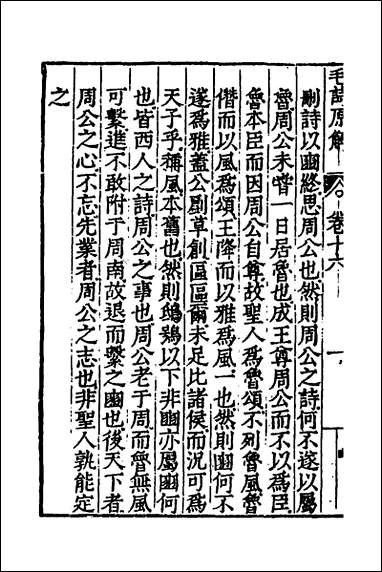 毛詩原解 卷十六 一
刪詩以豳終思周公也然則周公之詩何不遂以屬
魯周公未嘗一日居魯也成王尊周公而不以爲臣
魯本臣而因周公自尊故聖人爲魯頌不列魯風魯
僭而以風爲頌王降而以雅爲風一也然則豳何不
遂爲雅蓋公劉草創區區爾未足比諸侯而況可爲
天子乎稱風本舊也然則鴟鴞以下非豳亦屬豳何
也皆西人之詩周公之事也周公老于周而魯無風
可繫進不敢附于周南故退而繫之豳也後天下者
周公之心不忘先業者周公之志也非聖人孰能定
之